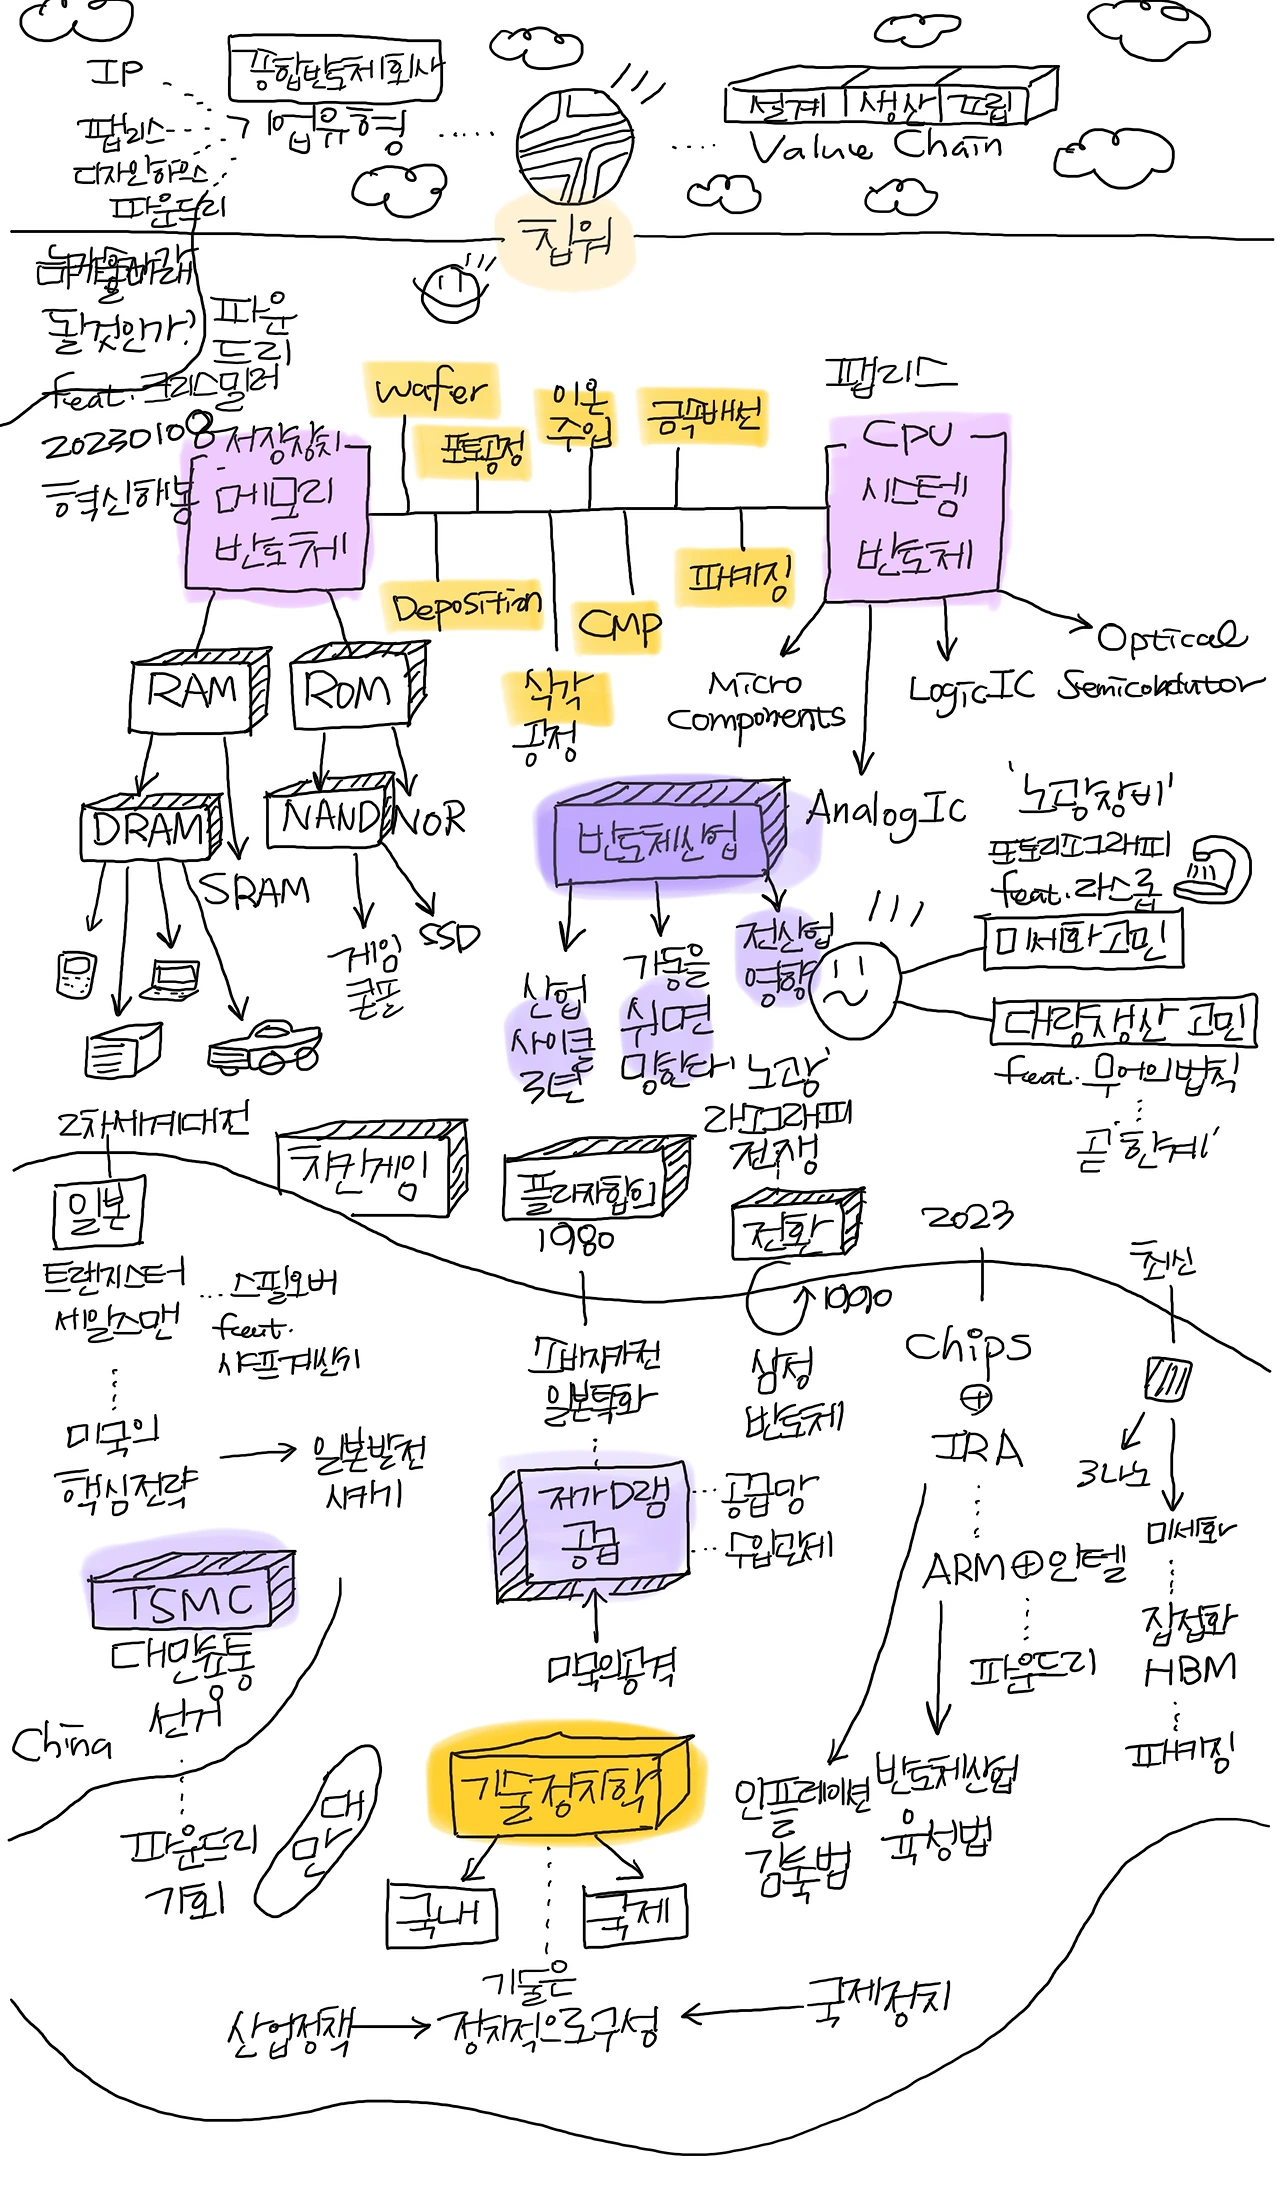 IP
팹리스
디자인하우스
파운드리
종합반도체회사
업유형
설계 생산 프립
Value Chain
칩워
될것인가?
feat.크리스밀러
20230108
혁신해봉
파운
드리
저장장치
메모리
반도체
wafer
포토공정
이온
주입
금속배선
Deposition
식각
공정
CMP
패키징
팹리스
CPU
시스템
반도체
Micro
Components
AnalogIC
LogicIC
Optical
Semicondutor
RAM
ROM
DRAM
SRAM
NAND
NOR
게임
콘솔
SSD
반도체산업
산업
사이클
3년
가동을
쉬면
망한다
전산업
영향
'노광장비'
포토리소그래피
feat.라스롭
미세화고민
대량생산 고민
feat.무어의법칙
곧'한계'
'노광'
리소그래피
전쟁
2차세계대전
일본
트랜지스터
세일즈맨
스필오버
feat.
샤프계산기
미국의
핵심전략
일본발전
시키기
치킨게임
플라자합의
1980
일본특화
저가D램
공급
공급망
수입관제
미국의공격
전환
1990
삼성
반도체
2023
Chips
⊕
IRA
ARM⊕인텔
파운드리
인플레이션
감축법
반도체산업
육성법
최신
3나노
미세화
집접화
HBM
패키징
TSMC
대만유통
선거
China
파운드리
기회
대
만
기술정치학
국내
국제
기술은
정치적으로구성
산업정책
국제정치